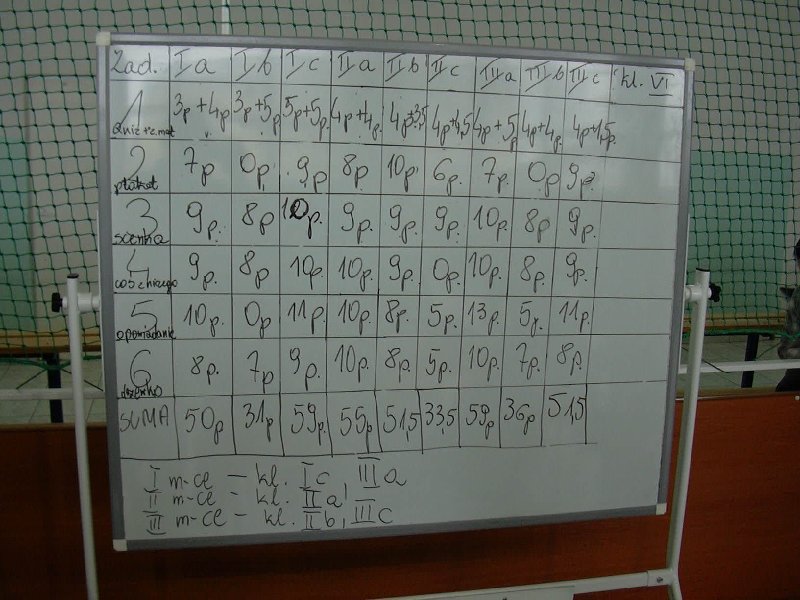 Zad. I a I b I c II a II b II c III a III b III c kl. VI
1 3p+4p 3p+5p 5p+5p. 4p+4p. 4p+3,5 4p+4,5 4p+5p 4p+4p. 4p+1,5p.
2 7p 0p. 9p 8p 10p. 6p. 7p. 0p 9p.
plakat
3 9p. 8p 10p. 9p. 9p. 9p. 10p. 8p 9p.
scenka
4 9p. 8p 10p. 10p. 9p. 0p. 10p. 8p. 9p.
coś z niczego
5 10p. 0p 11p. 10p. 8p. 5p. 13p. 5p. 11p.
opowiadanie
6 8p. 7p 9p. 10p. 8p. 5p. 10p. 7p. 8p.
SUMA 50p 31p 59p. 55p. 51,5 33,5 59p 36p 51,5
I m-ce – kl. I c, III a
II m-ce – kl. II a
III m-ce – kl. II b, III c